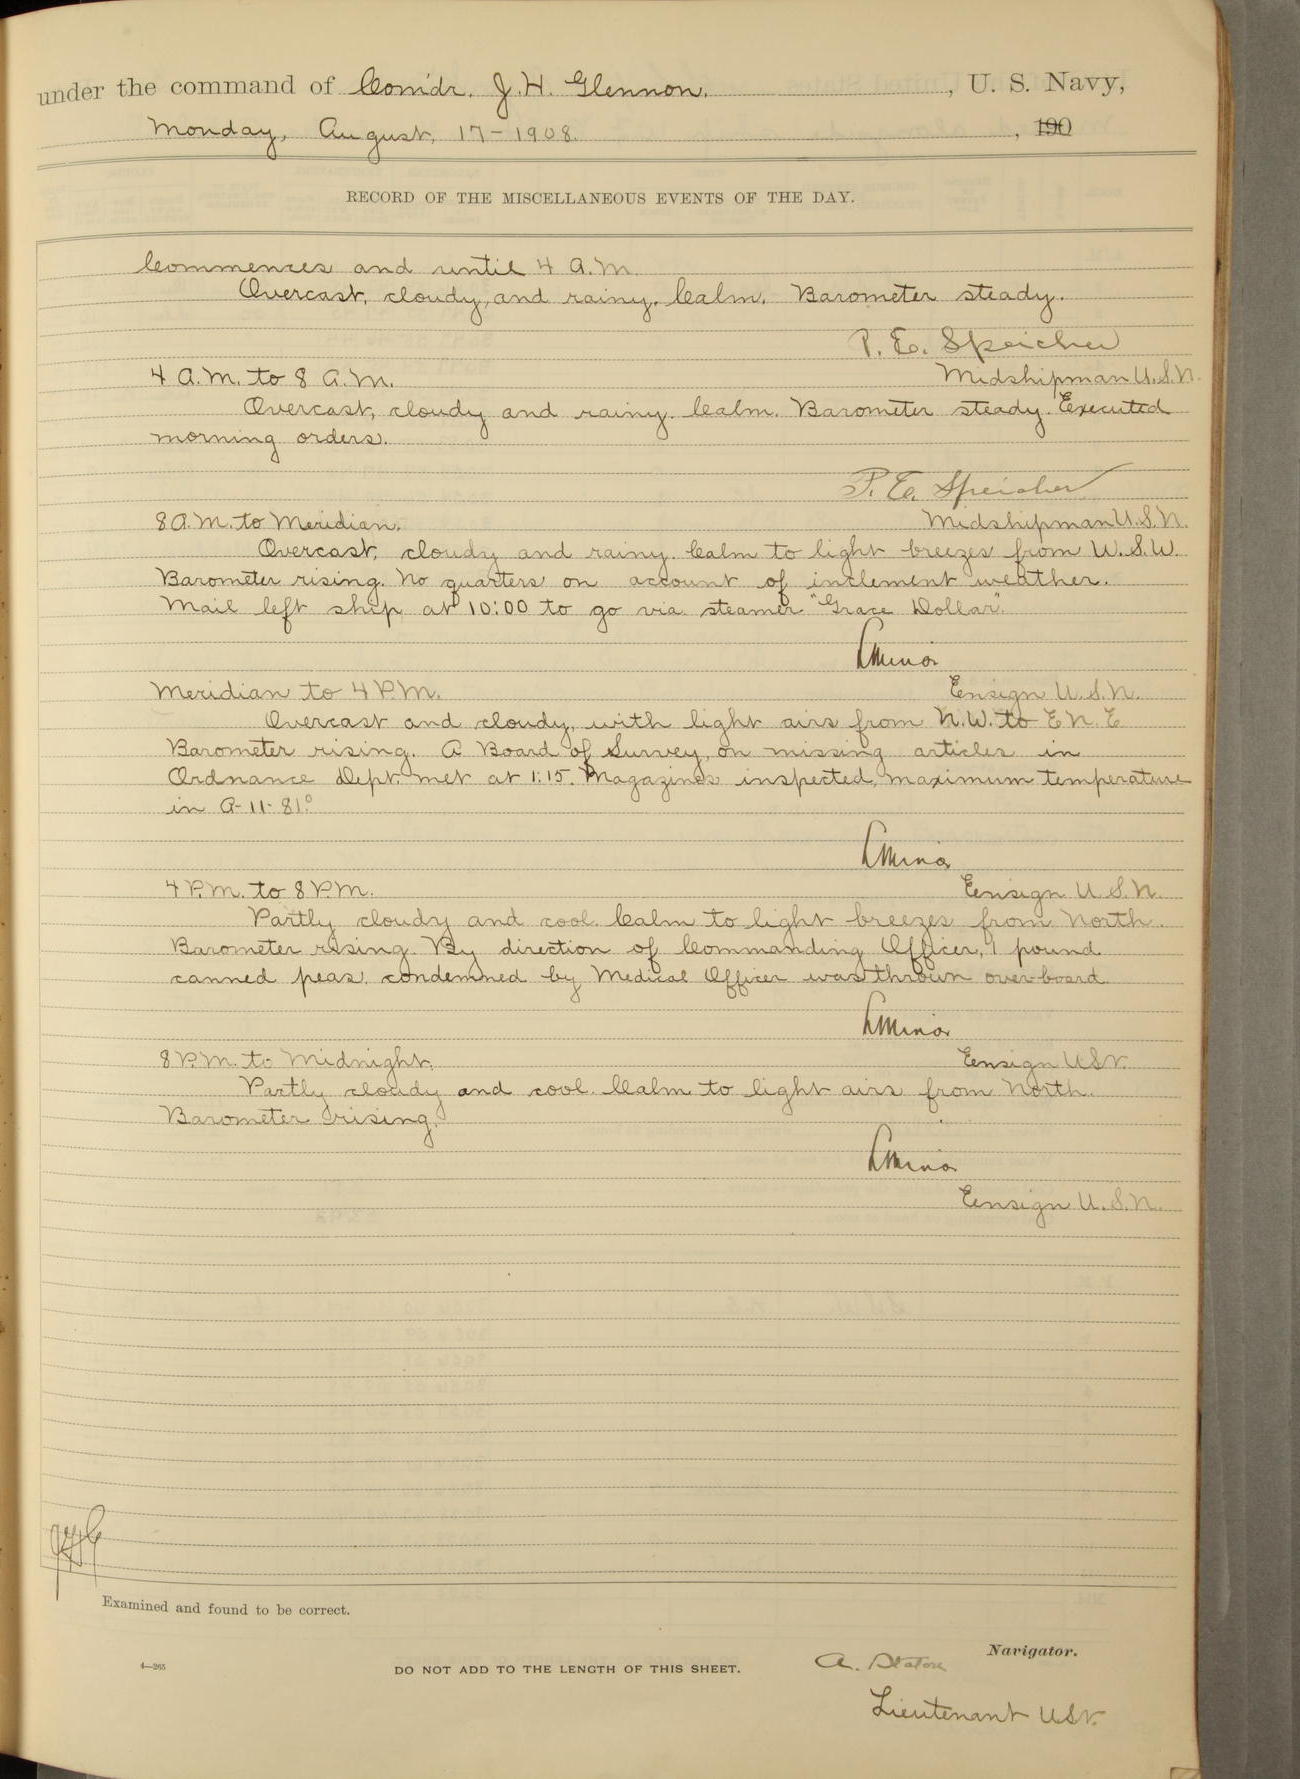 under the command of Com'dr. J. H. Glennon, U. S. Navy,
Monday, August, 17-1908. , 190
RECORD OF THE MISCELLANEOUS EVENTS OF THE DAY.
Commences and until 4 A.M.
Overcast, cloudy, and rainy. Calm. Barometer steady.
P. E. Speicher
4 A.M. to 8 A.M. Midshipman U.S.N.
Overcast, cloudy and rainy. Calm. Barometer steady. Executed
morning orders.
P. E. Speicher
8 A.M. to Meridian. Midshipman U.S.N.
Overcast, cloudy and rainy. Calm to light breezes from W.S.W.
Barometer rising. No quarters on account of inclement weather.
Mail left ship at 10:00 to go via steamer "Grace Dollar".
L Minor
Meridian to 4 P.M. Ensign U.S.N.
Overcast and cloudy, with light airs from N.W. to E N. E
Barometer rising. A Board of Survey, on missing articles in
Ordnance Dept. met at 1:15. Magazines inspected, maximum temperature
in A-11-81°
L Minor
4 P.M. to 8 P.M. Ensign U.S.N.
Partly cloudy and cool. Calm to light breezes from North.
Barometer rising. By direction of Commanding Officer, 1 pound
canned peas, condemned by Medical Officer was thrown over-board.
L Minor
8 P.M. to Midnight. Ensign USN.
Partly cloudy and cool. Calm to light airs from North.
Barometer rising.
L Minor
Ensign U.S.N.
JHG
Examined and found to be correct.
4—265
DO NOT ADD TO THE LENGTH OF THIS SHEET.
A. Staton Navigator.
Lieutenant USN.